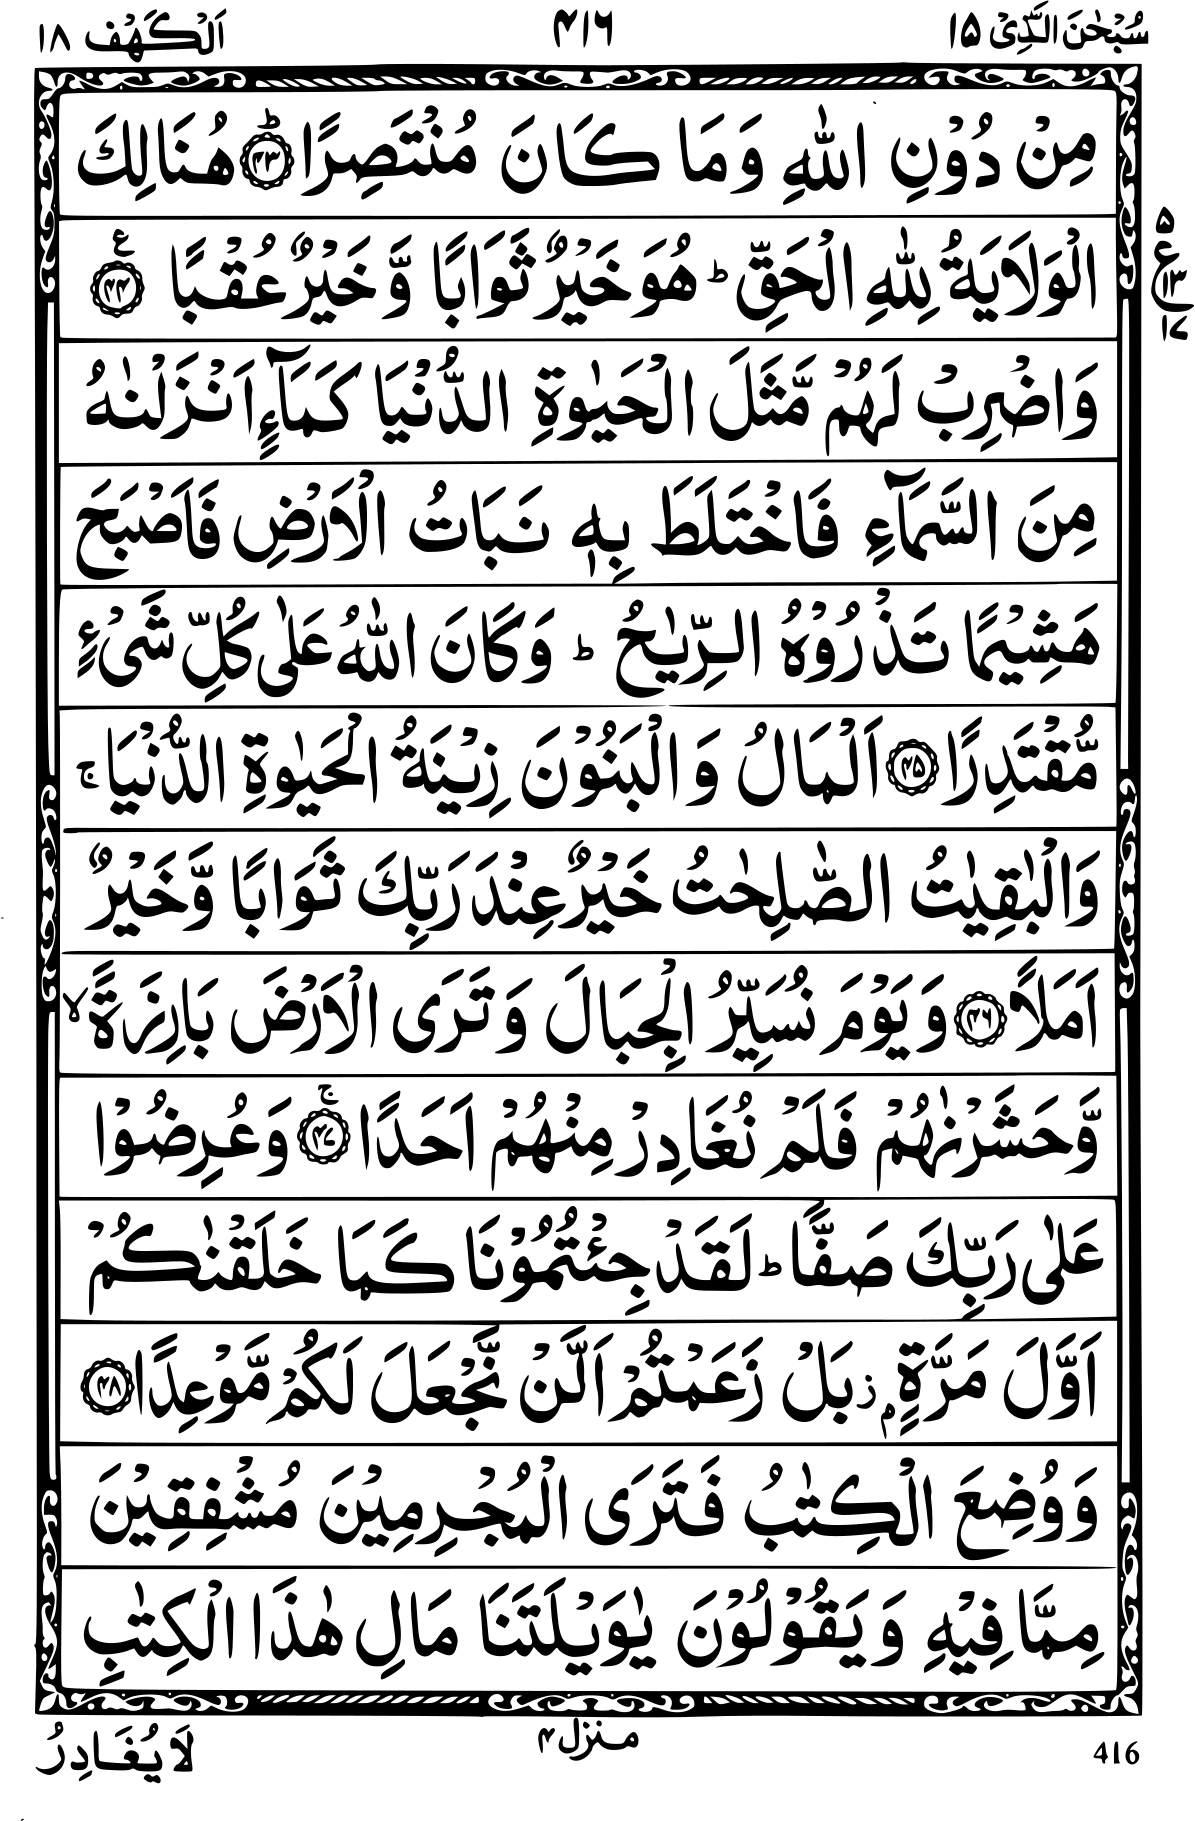 سُبْحٰنَ الَّذِیْ ۱۵ ۴۱۶ اَلْكَهْف ۱۸
مِنْ دُوْنِ اللّٰهِ وَمَا كَانَ مُنْتَصِرًا ؕ ﴿۴۳﴾ هُنَالِكَ
الْوَلَايَةُ لِلّٰهِ الْحَقِّ ؕ هُوَ خَيْرٌ ثَوَابًا وَّ خَيْرٌ عُقْبًا ﴿۴۴﴾ ع
۵ ع ۱۳ ۱۷
وَاضْرِبْ لَهُمْ مَّثَلَ الْحَيٰوةِ الدُّنْيَا كَمَآءٍ اَنْزَلْنٰهُ
مِنَ السَّمَآءِ فَاخْتَلَطَ بِهٖ نَبَاتُ الْاَرْضِ فَاَصْبَحَ
هَشِيْمًا تَذْرُوْهُ الرِّيٰحُ ؕ وَكَانَ اللّٰهُ عَلٰى كُلِّ شَیْءٍ
مُّقْتَدِرًا ﴿۴۵﴾ اَلْمَالُ وَالْبَنُوْنَ زِيْنَةُ الْحَيٰوةِ الدُّنْيَا ۚ
وَالْبٰقِيٰتُ الصّٰلِحٰتُ خَيْرٌ عِنْدَ رَبِّكَ ثَوَابًا وَّخَيْرٌ
اَمَلًا ﴿۴۶﴾ وَيَوْمَ نُسَيِّرُ الْجِبَالَ وَتَرَى الْاَرْضَ بَارِزَةً ۙ
وَّحَشَرْنٰهُمْ فَلَمْ نُغَادِرْ مِنْهُمْ اَحَدًا ۚ ﴿۴۷﴾ وَعُرِضُوْا
عَلٰى رَبِّكَ صَفًّا ؕ لَقَدْ جِئْتُمُوْنَا كَمَا خَلَقْنٰكُمْ
اَوَّلَ مَرَّةٍۭ ز بَلْ زَعَمْتُمْ اَلَّنْ نَّجْعَلَ لَكُمْ مَّوْعِدًا ﴿۴۸﴾
وَوُضِعَ الْكِتٰبُ فَتَرَى الْمُجْرِمِيْنَ مُشْفِقِيْنَ
مِمَّا فِيْهِ وَيَقُوْلُوْنَ يٰوَيْلَتَنَا مَالِ هٰذَا الْكِتٰبِ
416 منزل ۴ لَا يُغَادِرُ